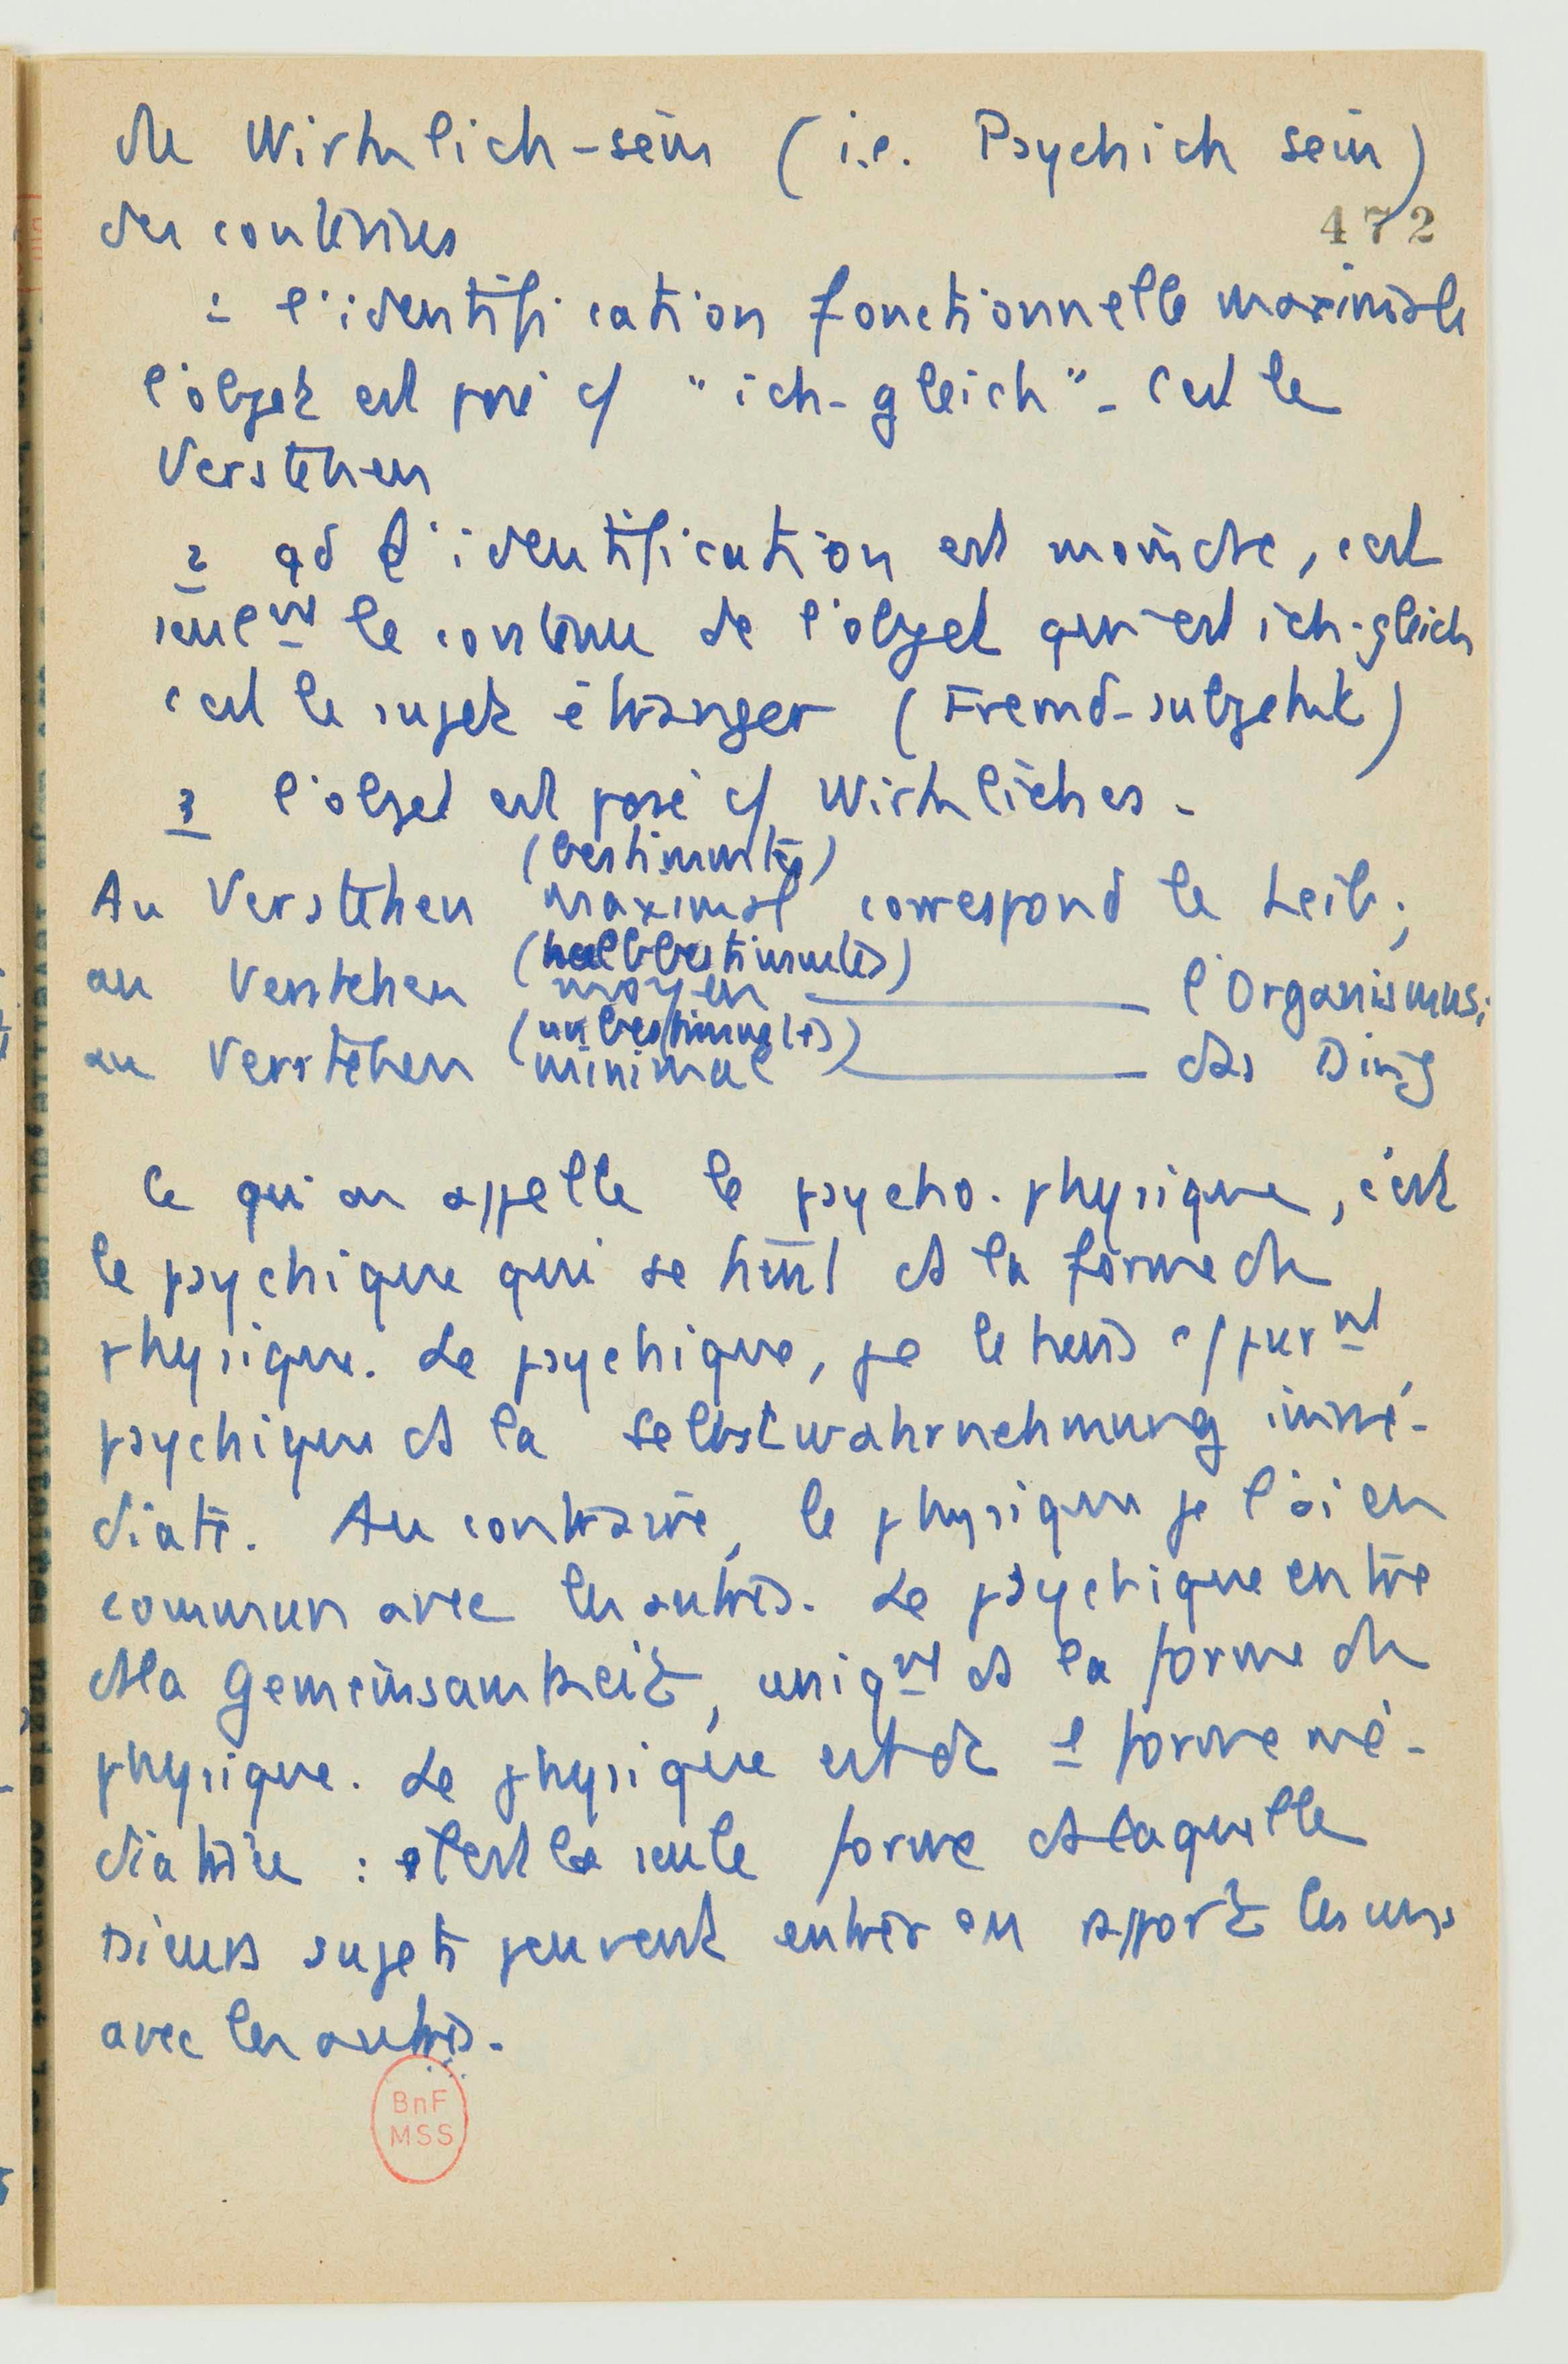 du Wirklich-sein (i.e. Psychich sein)
des contenus
472
1 l'identification fonctionnelle maximale
l'objet est posé c/ "ich-gleich" - c'est le
Verstehen
2 qd l'identification est moindre, c'est
seulmt le contenu de l'objet qui est ich-gleich
c'est le sujet étranger (Fremd-subjekt)
3 l'objet est posé c/ Wirkliches -
(bestimmtes)
Au Verstehen maximal correspond le Leib ;
(halbbestimmtes)
au Verstehen moyen ——— l'Organismus ;
(unbestimmtes)
au Verstehen minimal ——— das Ding
Ce qu'on appelle le psycho-physique, c'est
le psychique qui se tient ds la forme du
physique. Le psychique, je le tiens c/ purmt
psychique ds la Selbstwahrnehmung immé-
diate. Au contraire, le physique je l'ai en
commun avec les autres. Le psychique entre
ds la Gemeinsamkeit, uniqmt ds la forme du
physique. Le physique est dc 1 forme mé-
diatrice : c'est la seule forme ds laquelle
sieurs sujets peuvent entrer en rapport les uns
avec les autres.
BnF
MSS